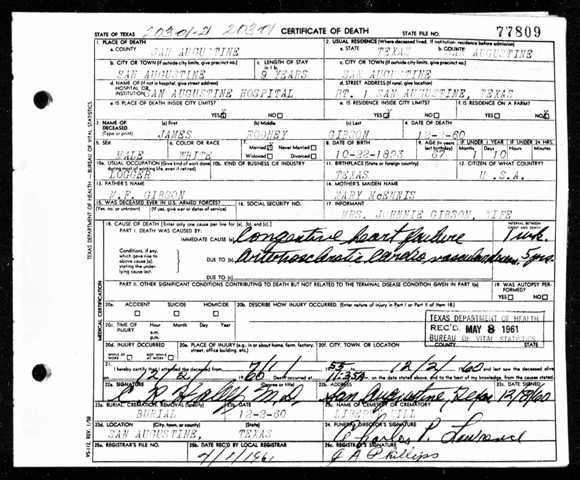 STATE OF TEXAS CERTIFICATE OF DEATH STATE FILE NO. 77809
1. PLACE OF DEATH 2. USUAL RESIDENCE (Where deceased lived. If institution: residence before admission)
a. COUNTY SAN AUGUSTINE a. STATE TEXAS b. COUNTY SAN AUGUSTINE
b. CITY OR TOWN (If outside city limits, give precinct no.) c. LENGTH OF STAY c. CITY OR TOWN (If outside city limits, give precinct no.)
SAN AUGUSTINE 9 YEARS SAN AUGUSTINE
d. NAME OF (If not in hospital, give street address) d. STREET ADDRESS (If rural, give location)
HOSPITAL OR INSTITUTION SAN AUGUSTINE HOSPITAL RT. 1 SAN AUGUSTINE, TEXAS
e. IS PLACE OF DEATH INSIDE CITY LIMITS? e. IS RESIDENCE INSIDE CITY LIMITS? f. IS RESIDENCE ON A FARM?
YES NO YES NO YES NO
3. NAME OF DECEASED (Type or print) (a) First (b) Middle (c) Last 4. DATE OF DEATH
JAMES GIBSON 12-2-60
5. SEX 6. COLOR OR RACE 7. Married Never Married Widowed Divorced 8. DATE OF BIRTH 9. AGE IF UNDER 1 YEAR IF UNDER 24 HRS.
MALE WHITE 67 1 10
10a. USUAL OCCUPATION (Give kind of work done 10b. KIND OF BUSINESS OR INDUSTRY 11. BIRTHPLACE (State or foreign country) 12. CITIZEN OF WHAT COUNTRY?
LOGGER TEXAS U.S.A.
13. FATHER'S NAME 14. MOTHER'S MAIDEN NAME
GIBSON MARY McENNIS
15. WAS DECEASED EVER IN U.S. ARMED FORCES? 16. SOCIAL SECURITY NO. 17. INFORMANT
(Yes, no, or unknown) (If yes, give war or dates of service) MRS. JOHNNIE GIBSON, WIFE
18. CAUSE OF DEATH [Enter only one cause per line for (a), (b), and (c).] INTERVAL BETWEEN ONSET AND DEATH
PART I. DEATH WAS CAUSED BY:
IMMEDIATE CAUSE (a) Congestive heart failure 1 wk.
Conditions, if any, which gave rise to above cause (a) stating the underlying cause last. DUE TO (b) Arteriosclerotic cardio vascular 5 yrs.
DUE TO (c)
PART II. OTHER SIGNIFICANT CONDITIONS CONTRIBUTING TO DEATH BUT NOT RELATED TO THE TERMINAL DISEASE CONDITION GIVEN IN PART I(a) 19. WAS AUTOPSY PERFORMED?
YES NO
20a. ACCIDENT SUICIDE HOMICIDE 20b. DESCRIBE HOW INJURY OCCURRED. (Enter nature of injury in Part I or Part II of item 18.)
20c. TIME OF INJURY Hour Month Day Year
a.m.
p.m.
TEXAS DEPARTMENT OF HEALTH
REC'D MAY 8 1961
BUREAU OF VITAL STATISTICS
20d. INJURY OCCURRED 20e. PLACE OF INJURY (e.g., in or about home, farm, factory, street, office building, etc.) 20f. CITY, TOWN, OR LOCATION COUNTY STATE
WHILE AT WORK NOT WHILE AT WORK
21. I hereby certify that I attended the deceased from 7/1 55 12/2 60
11:35A
22a. SIGNATURE 22b. ADDRESS 22c. DATE SIGNED
M.D. San Augustine, Texas
23a. BURIAL, CREMATION, REMOVAL (Specify) 23b. DATE 23c. NAME OF CEMETERY OR CREMATORY
BURIAL
23d. LOCATION (City, town, or county) (State) 24. FUNERAL DIRECTOR'S SIGNATURE
SAN AUGUSTINE, TEXAS Charles P. Lawrence
25a. REGISTRAR'S FILE NO. 25b. DATE REC'D BY LOCAL REGISTRAR 25c. REGISTRAR'S SIGNATURE
Phillips
TEXAS DEPARTMENT OF HEALTH—BUREAU OF VITAL STATISTICS
MEDICAL CERTIFICATION
VS-112, REV. 1/58